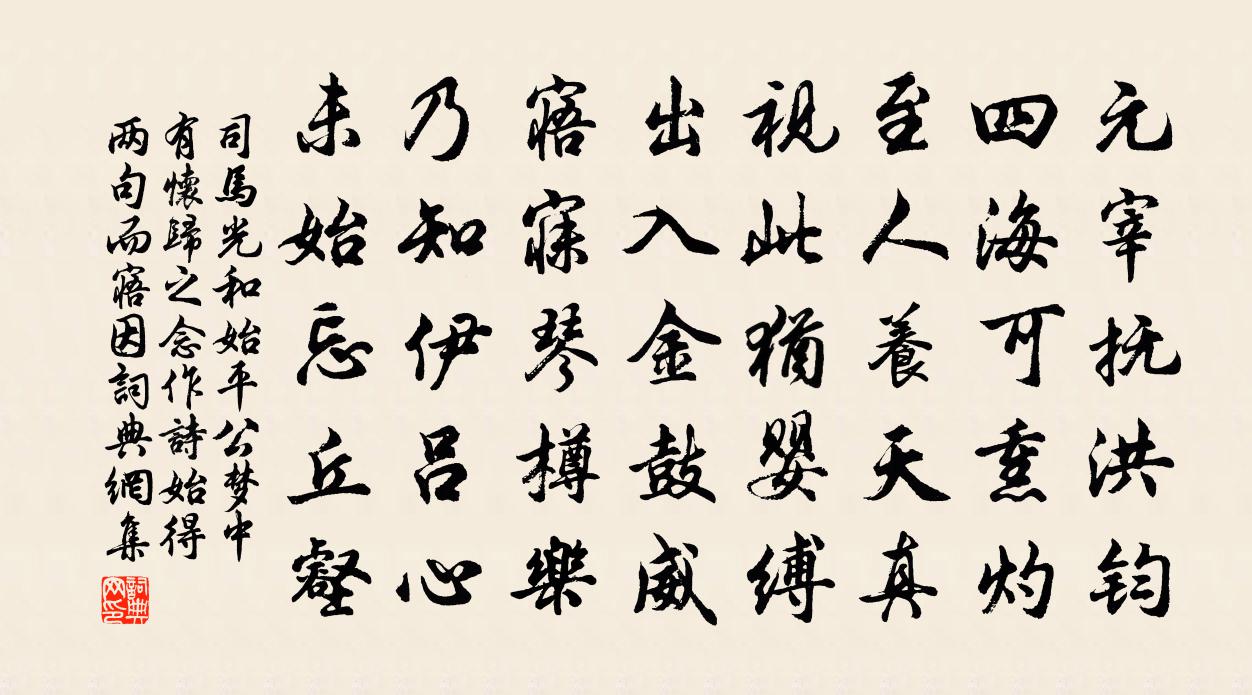 元宰抚洪钧
四海可熏灼
至人養天真
視此猶嬰縛
出入金鼓威
寤寐琴樽樂
乃知伊呂心
未始忘丘壑
司馬光和始平公梦中
有懷歸之念作詩始得
两句而寤因詞典網集
詞典网印